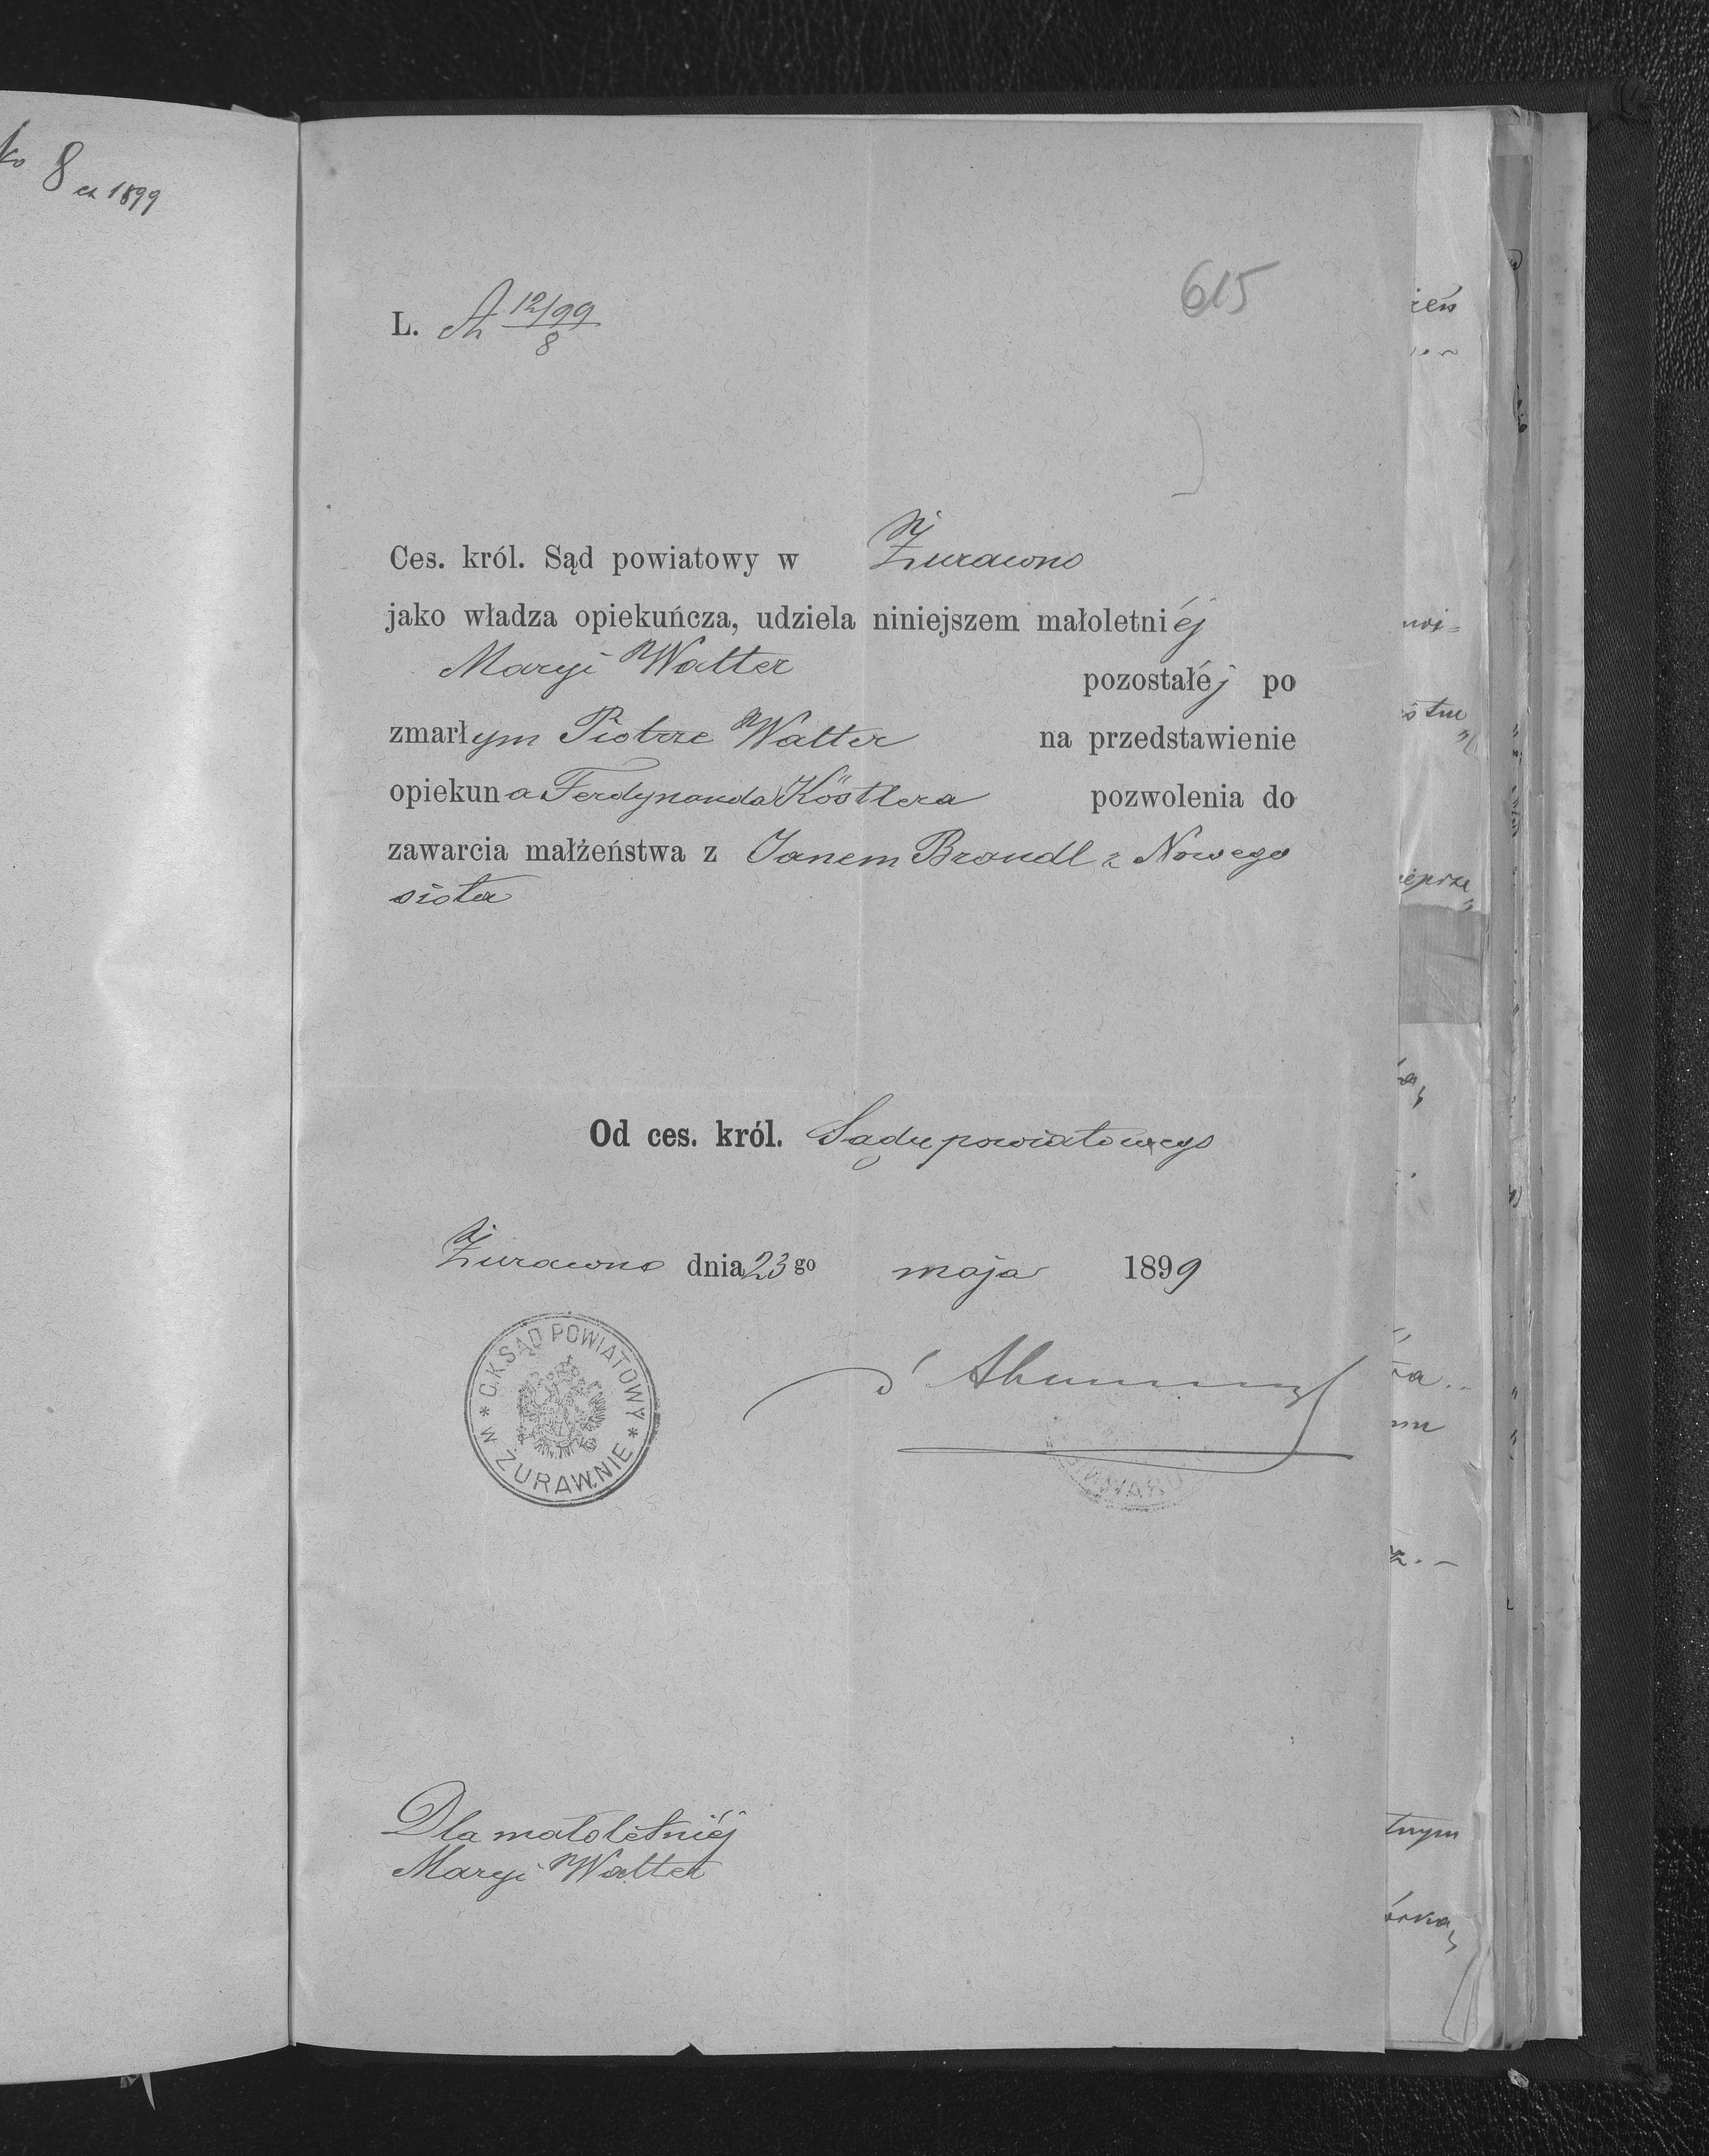 8 ex 1899
615
L. A 12/99
8
Ces. król. Sąd powiatowy w Żurawno
jako władza opiekuńcza, udziela niniejszem małoletniéj
Maryi Walter pozostałéj po
zmarłym Piotrze Walter na przedstawienie
opiekuna Ferdynanda Köstlera pozwolenia do
zawarcia małżeństwa z Janem Brandl z Nowego
sioła
Od ces. król. Sądu powiatowego
Żurawno dnia 23go maja 1899
C.K. SĄD POWIATOWY * W ŻURAWNIE *
Dla małoletniéj
Maryi Walter